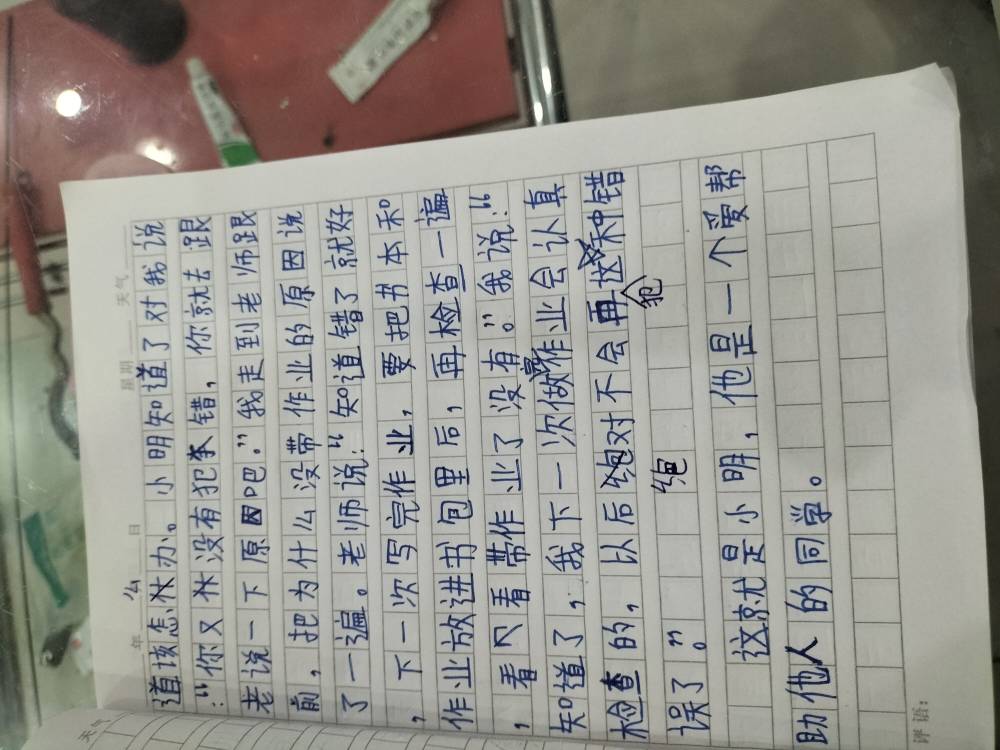 年 日 星期 天气
么
道该怎办。小明知道了对我说
：“你又没有犯错，你就去跟
老说一下原因吧。”我走到老师跟
前，把为什么没带作业的原因说
了一遍。老师说：“知道错了就好
，下一次写完作业，要把书本和
作业放进书包里后，再检查一遍
，看看带作业了没有。”我说：“
知道了，我下一次做作业会认真
检查的，以后绝对不会再犯这种错
绝
误了”。
这就是小明，他是一个爱帮
助他人的同学。
评语：
天气